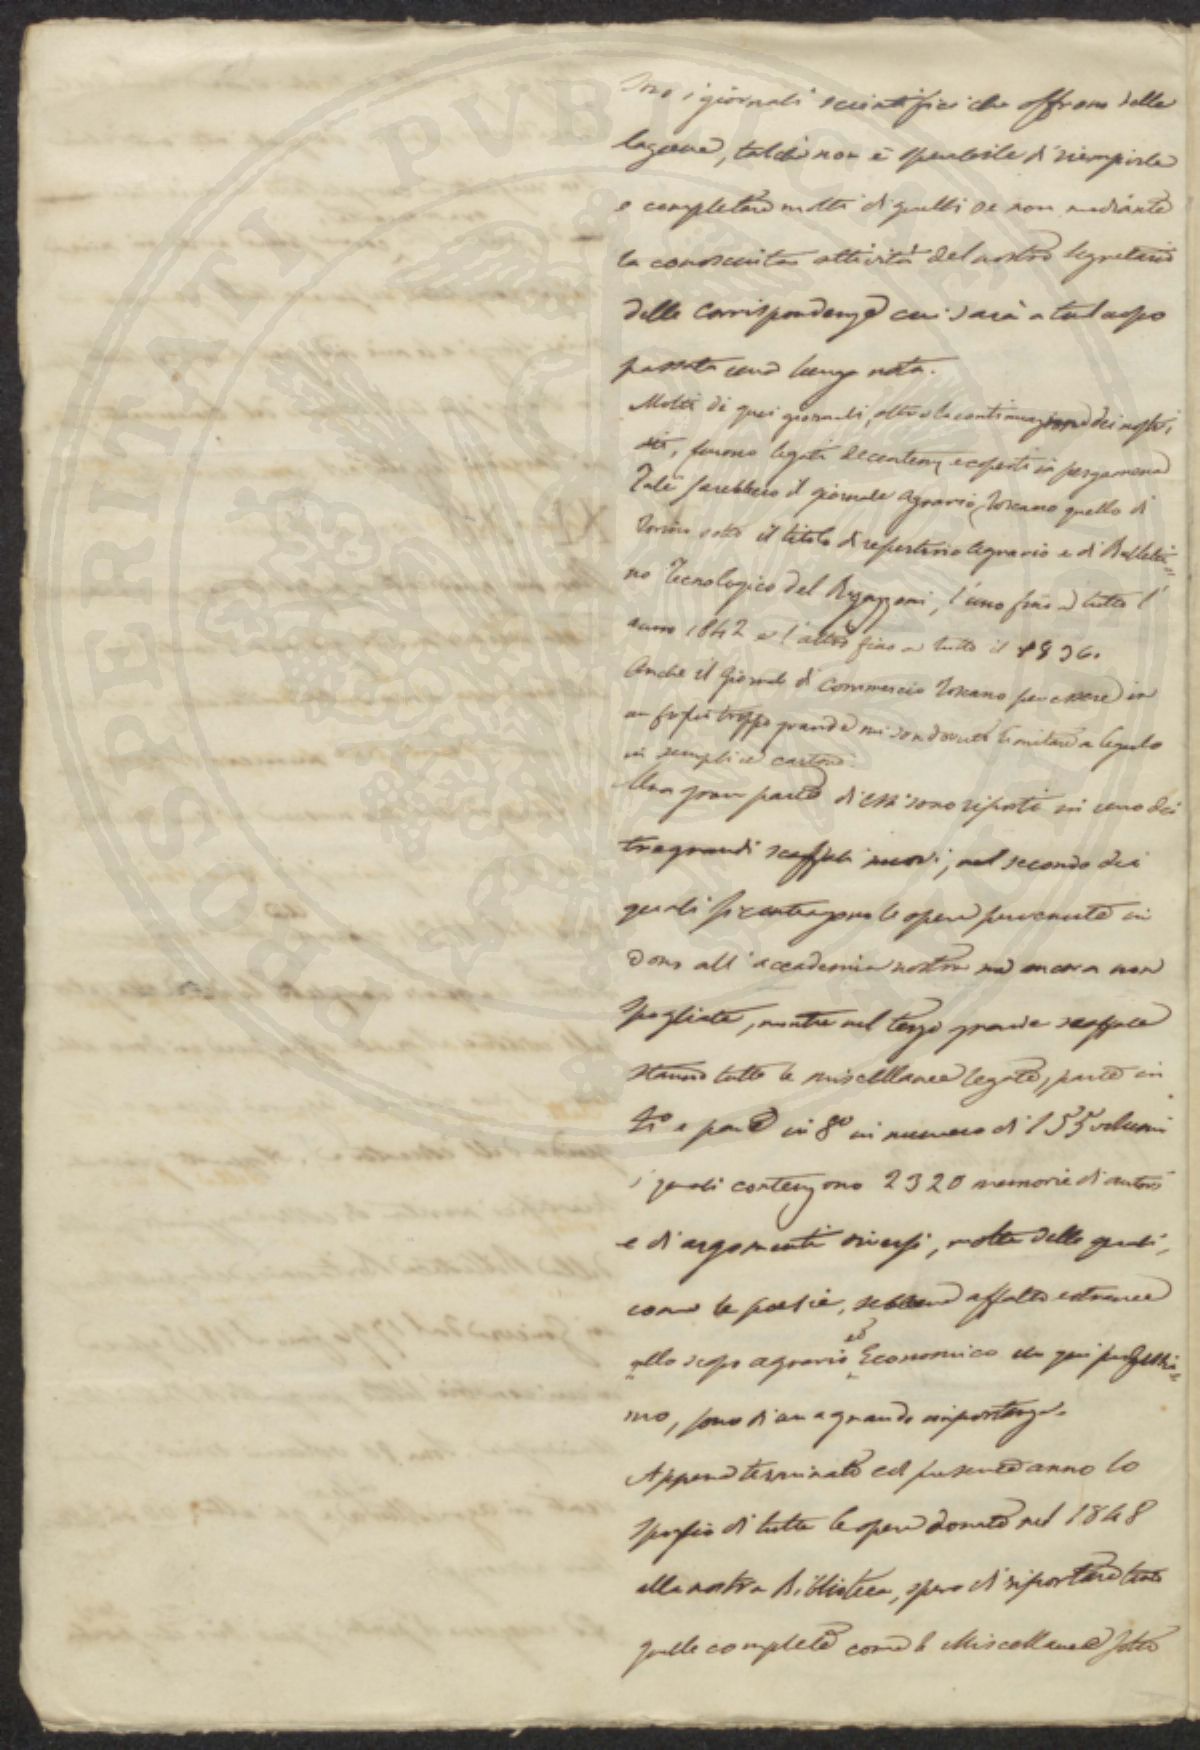 sono i giornali scientifici che offrono delle
lagune, talché non è sperabile di riempirle
e completare molti di quelli se non mediante
la conosciuta attività del nostro Segretario
delle Corrispondenze cui sarà a tal uopo
passata una lunga nota.
Molti di quei giornali, oltre la continuazione dei nostri
furono legati decentem e coperti in pergamena
Tali sarebbero il giornale Agrario Toscano quello di
Torino sotto il titolo di repertorio Agrario e di Bulleti=
no Tecnologico del l'uno fino a tutto l'
anno 1842 e l'altro fino a tutto il 1836.
Anche il Giornale di Commercio Toscano per essere in
un troppo grande mi son dovuto limitare a legarlo
in semplice cartone.
Una gran parte di essi sono riposti in uno dei
tre grandi scaffali nuovi, nel secondo dei
quali si contengono le opere pervenute in
dono all'accademia nostra ma ancora non
spogliate, mentre nel terzo grande scaffale
stanno tutte le miscellanee legate, parte in
4o e parte in 8o in numero di 155 volumi
i quali contengono 2320 memorie di autori
e di argomenti diversi, molte delle quali,
come le poesie, sebbene affatto estranee
allo scopo agrario ed Economico
mo, sono di una grande importanza.
Appena terminato col presente anno lo
spoglio di tutte le opere donate nel 1848
alla nostra Biblioteca, spero di riportare tanto
quelle complete come le Miscellanee sotto
PROSPERITATI PVBLICAE